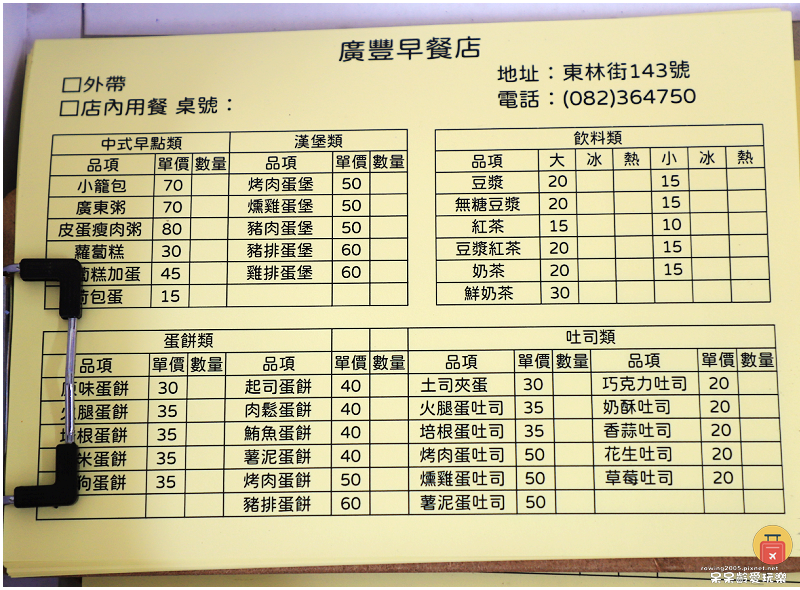 廣豐早餐店
□外帶
□店內用餐 桌號：
地址：東林街143號
電話：(082)364750
中式早點類 漢堡類
品項 單價 數量 品項 單價 數量
小籠包 70 烤肉蛋堡 50
廣東粥 70 燻雞蛋堡 50
皮蛋瘦肉粥 80 豬肉蛋堡 50
蘿蔔糕 30 豬排蛋堡 60
蔔糕加蛋 45 雞排蛋堡 60
荷包蛋 15
飲料類
品項 大 冰 熱 小 冰 熱
豆漿 20 15
無糖豆漿 20 15
紅茶 15 10
豆漿紅茶 20 15
奶茶 20 15
鮮奶茶 30
蛋餅類 吐司類
品項 單價 數量 品項 單價 數量 品項 單價 數量 品項 單價 數量
原味蛋餅 30 起司蛋餅 40 土司夾蛋 30 巧克力吐司 20
火腿蛋餅 35 肉鬆蛋餅 40 火腿蛋吐司 35 奶酥吐司 20
培根蛋餅 35 鮪魚蛋餅 40 培根蛋吐司 35 香蒜吐司 20
米蛋餅 35 薯泥蛋餅 40 烤肉蛋吐司 50 花生吐司 20
狗蛋餅 35 烤肉蛋餅 50 燻雞蛋吐司 50 草莓吐司 20
豬排蛋餅 60 薯泥蛋吐司 50
rowing2005.pixnet.net
呆呆齡愛玩樂